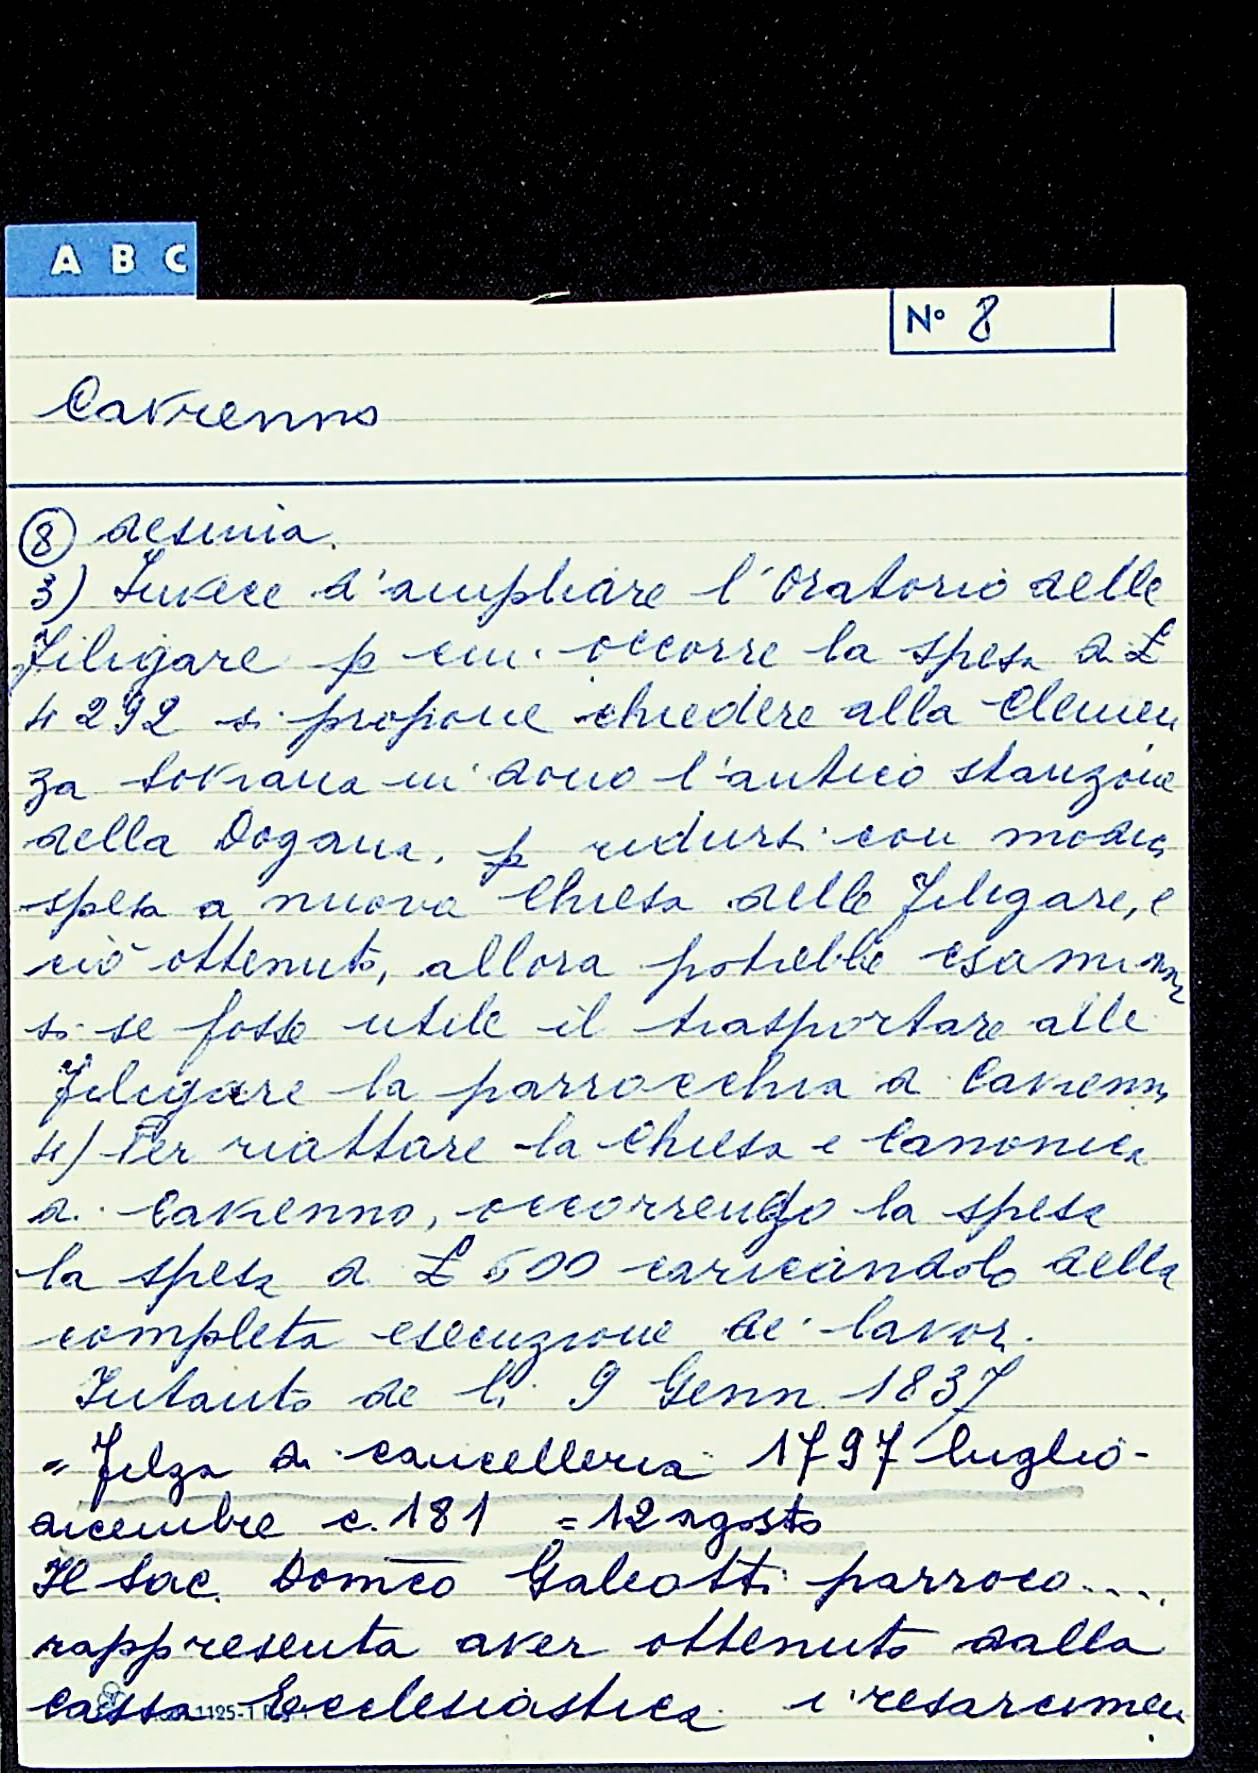 A B C
N° 8
Cavrenno
⑧ desima.
3) Invece d'ampliare l'Oratorio delle
Filigare p cui occorre la spesa di £
4292 si propone chiedere alla Clemen
za Sovrana in dono l'antico stanzone
della Dogana, p ridursi con modica
spesa a nuova Chiesa delle Filigare, e
ciò ottenuto, allora potrebbe esaminar
si se fosse utile il trasportare alle
Filigare la parrocchia di Cavrenno
4) Per riattare la Chiesa e Canonica
di Cavrenno, occorrendo la spesa
la spesa di £ 600 caricandolo della
completa esecuzione de' lavori.
Intanto de li 9 Genn. 1837
= Filza di cancelleria 1797 luglio-
dicembre c. 181 = 12 agosto
Il Sac. Domco Galeotti parroco....
rappresenta aver ottenuto dalla
Cassa Ecclesiastica i resarcimen
1125-1